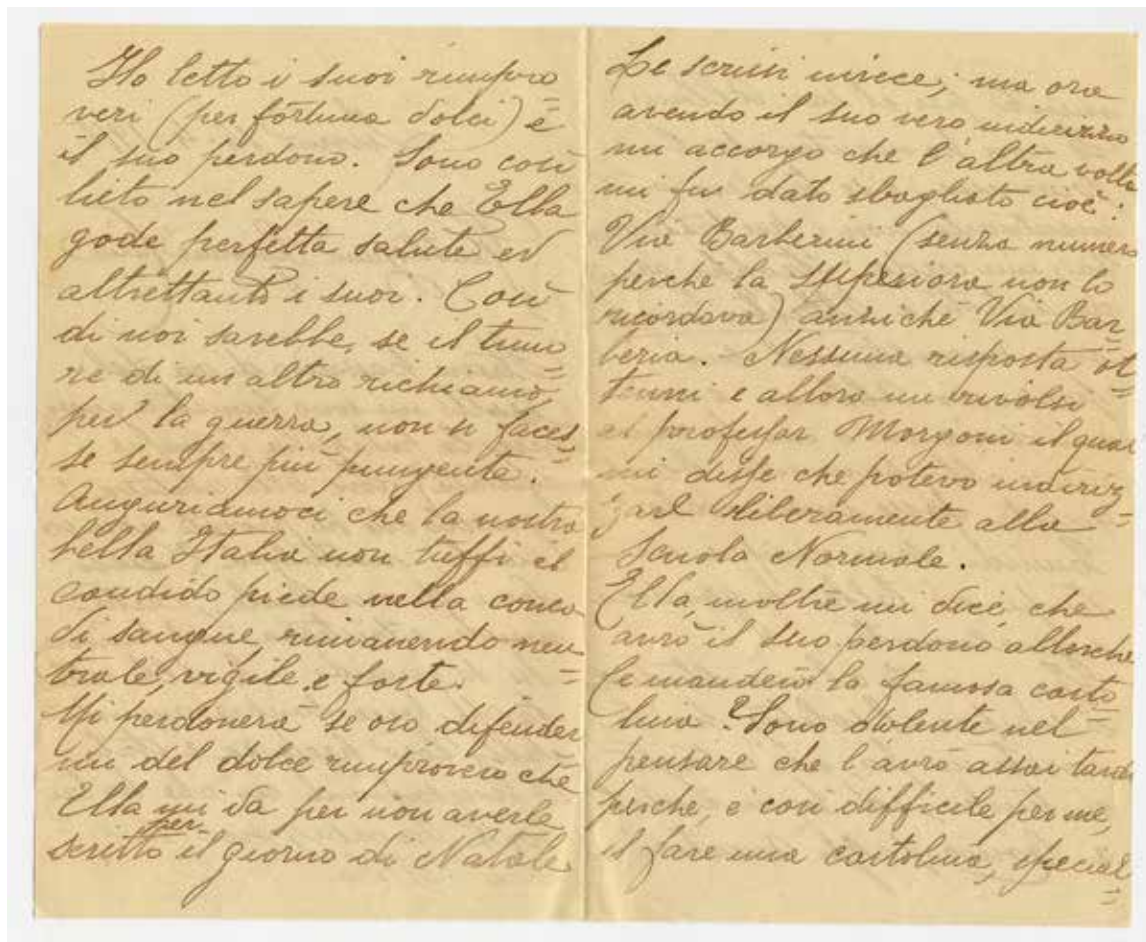 Ho letto i suoi rimpro=
veri (per fortuna dolci) e
il suo perdono. Sono così
lieto nel sapere che Ella
gode perfetta salute ed
altrettanto i suoi. Così
di noi sarebbe, se il timo=
re di un altro richiamo,
per la guerra, non si faces=
se sempre più pungente.
Auguriamoci che la nostra
bella Italia non tuffi il
candido piede nella conca
di sangue, rimanendo neu=
trale, vigile, e forte.
Mi perdonerà se oso difender
mi del dolce rimprovero che
Ella mi dà per non averle
scritto per il giorno di Natale.
Le scrissi invece; ma ora
avendo il suo vero indirizzo
mi accorgo che l'altra volta
mi fu dato sbagliato cioè:
Via Barberini (senza numero
perchè la Superiora non lo
ricordava) anzichè Via Bar
beria. - Nessuna risposta ot=
tenni e allora mi rivolsi
al professor Morgoni il qual
mi disse che potevo indiriz=
zare liberamente alla
Scuola Normale.
Ella, inoltre mi dice, che
avrò il suo perdono allorchè
le manderò la famosa carto=
lina? Sono dolente nel
pensare che l'avrò assai tardi
perchè, è così difficile per me,
il fare una cartolina, special=